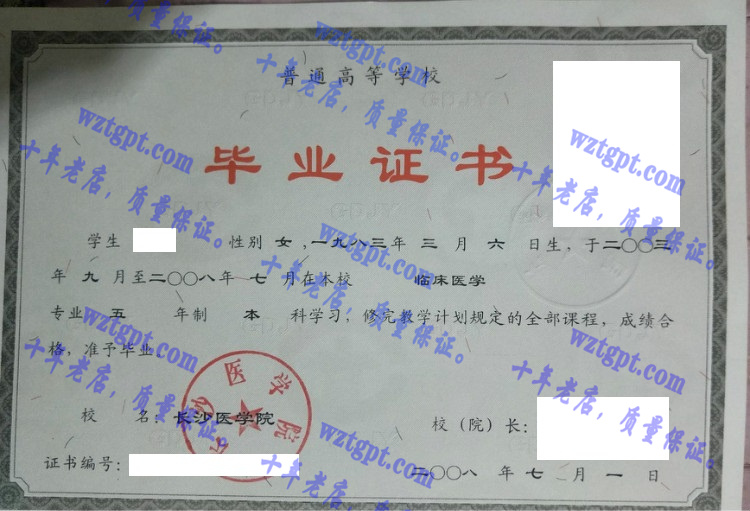 普通高等学校
毕业证书
学生 性别 女 ,一九八三年 三 月 六 日生, 于二〇〇三
年 九 月至二〇〇八年 七 月在本校 临床医学
专业 五 年制 本 科学习, 修完教学计划规定的全部课程, 成绩合
格, 准予毕业。
校 名: 长沙医学院
校(院)长:
证书编号:
二〇〇八 年 七 月 一 日
长沙医学院
wztgpt.com
十年老店,质量保证。
wztgpt.com
十年老店,质量保证。
wztgpt.com
十年老店,质量保证。
wztgpt.com
十年老店,质量保证。
wztgpt.com
十年老店,质量保证。
wztgpt.com
十年老店,质量保证。
wztgpt.com
十年老店,质量保证。
十年老店,质量保证。